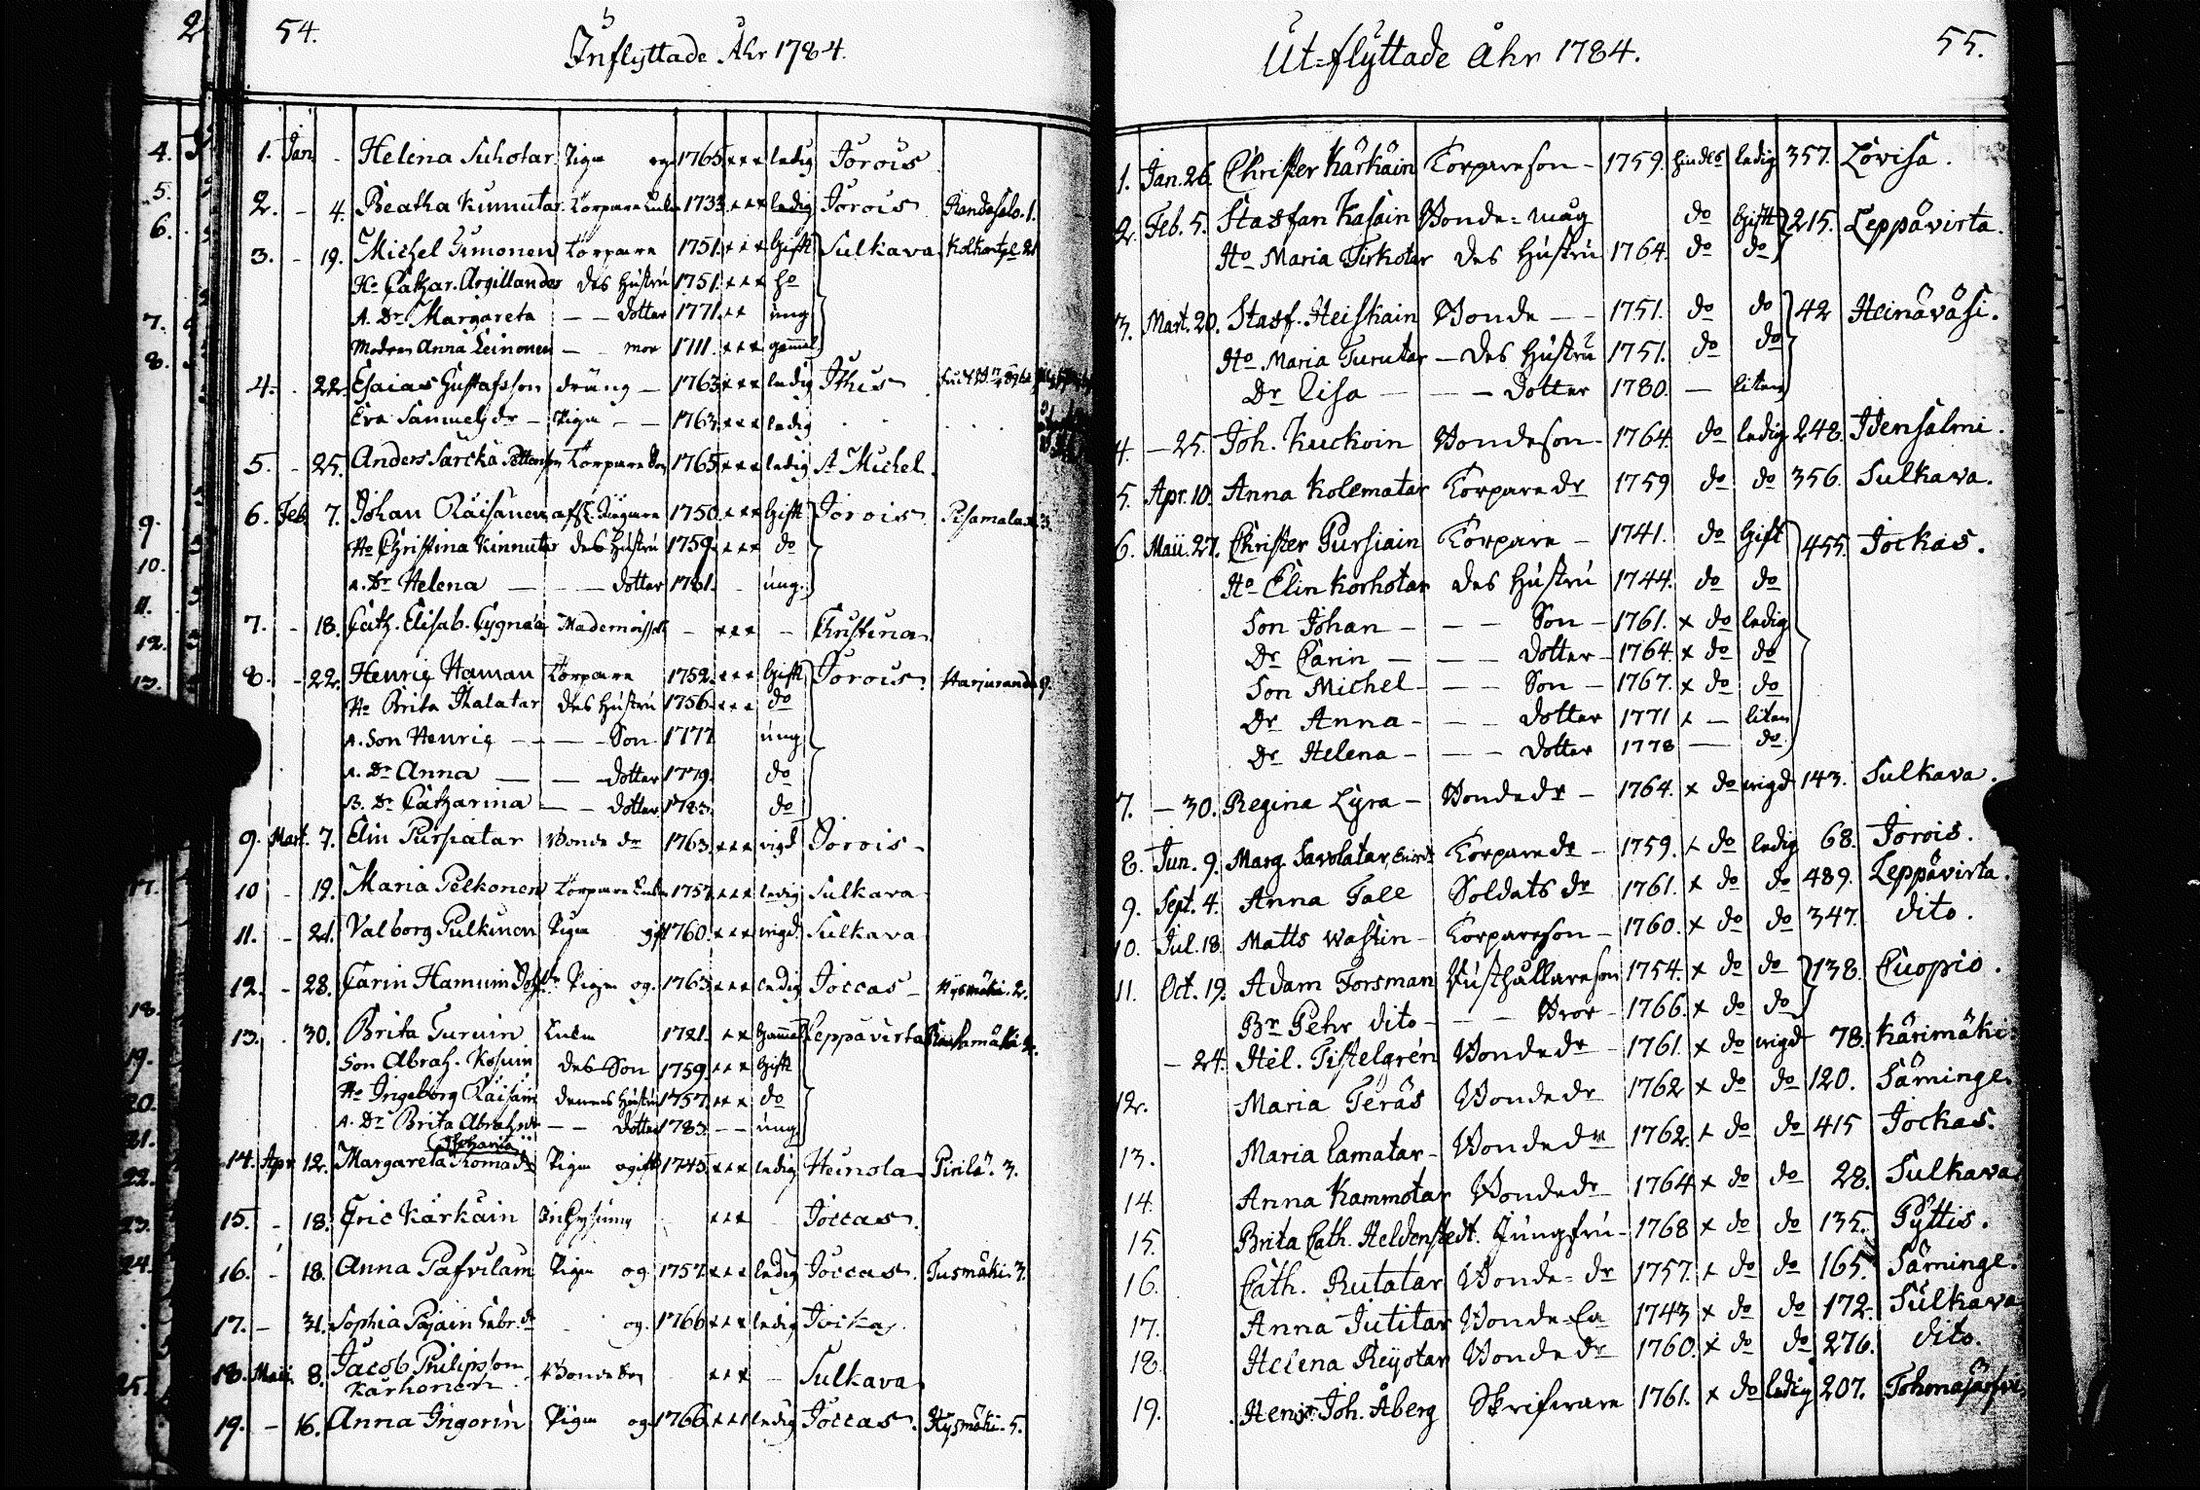 54.
Inflyttade Åhr 1784.
1. Jan - Helena Suhotar Pigu og 1765 xxx ledig Jorois
2. - 4. Beatha Kinnutar Torpare Enka 1733 xxx ledig Jorois Randasalo. 1.
3. - 19. Michel Simonen Torpare 1751. xxx Gift Sulkava
Ho Cathar. Argillander des Hustru 1751. xxx ho
A. Dr. Margareta - - dotter 1771. xx ung
Modren Anna Leinonen - - mor 1711. xxx gammal
4. - 22. Esaias Gustafsson dräng - 1763 xxx ledig Ithis
Eva Samuelsdr - Pigu - - 1763. xxx ledig
5. - 25. Anders Sarcka Torpare Son 1765 xxx ledig St Michel.
6. Feb. 7. Johan Räisänen 1750. xxx Gift Jorois Pisamala. 3.
Ho Christina Kinnutar des Hustru 1759. xxx do
A. Dr Helena - - - dotter 1781. - ung.
7. - 18. Cath. Elisab. Cygnæa Mademoiselle - xxx - Christina
8. - 22. Henric Haman Torpare 1752. xxx Gift Jorois. Harjuranda 9.
Ho Brita Ihalatar des Hustru 1756. xxx do
A. Son Henric - - - Son 1777 ung
A. Dr Anna - - - dotter 1779. do
B. Dr Catharina - - dotter 1783. do
9. Mart. 7. Elin Pursiatar Bonde dr 1763. xxx vigd Jorois -
10 - 19. Maria Pelkonen Torpare Enka 1757. xxx ledig Sulkava
11. - 21. Valborg Pulkinen Pigu gift 1760. xxx vigd. Sulkava
12. - 28. Carin Hamuin Pigu og. 1763 xxx ledig Joccas - Hysmäki. 2.
13. . 30. Brita Turuin Enka 1721. xx Gammal Leppävirta
Son Abrah. Kosuin des Son 1759. xxx Gift
Ho Ingeborg Räisäin dennes Hustru 1757. xxx do
A. Dr Brita Abrahsdr - - dotter 1783. - - ung
14. Apr 12. Margareta Pigu ogift 1745 xxx ledig Heinola Pirilä. 3.
15. - 18. Eric Kärkäin xxx - Joccas.
16. - 18. Anna Pafvilain Pigu og 1757. xxx ledig Joccas. Tusmäki 7.
17. - 31. Sophia Pajain Gabr. dr og. 1766 xxx ledig Jockas.
18. Maii. 8. Jacob Philipsson Bonde Son xxx - Sulkava
Karhonen
19. - 16. Anna Grigorin Pigu og 1766. xxx ledig Joccas. Hysmäki. 5.
55.
Ut=flyttade åhr 1784.
1. Jan. 26. Christer Kärkäin Torpareson - 1759. ledig 357. Lovisa.
2. Feb. 5. Staffan Kasain Bonde=måg do Gift 215. Leppävirta.
Ho Maria Tirkotar des Hustru 1764. do do
3. Mart. 20. Staff. Heiskain Bonde - - 1751. do do 42 Heinäväsi.
Ho Maria Turutar - des Hustru 1751. do do
Dr Lisa - - - Dotter 1780. - liten
4. - 25. Joh. Kuckoin Bondeson - 1764. do ledig 248. Idensalmi.
5. Apr. 10. Anna Kolematar Torpare dr 1759 do do 356. Sulkava.
6. Maii. 27. Christer Pursiain Torpare - 1741. do Gift 455. Jockas.
Ho Elin Korhotar des Hustru 1744. do do
Son Johan - - - Son - 1761. x do ledig
Dr Carin - - - Dotter - 1764. x do do
Son Michel - - - Son - 1767. x do do
Dr Anna - - - Dotter 1771 x - liten
Dr Helena - - - Dotter 1778 - do
7. - 30. Regina Lyra - Bondedr - 1764. x do vigd 143. Sulkava.
8. Jun. 9. Marg Savolatar, Torparedr - 1759. x do ledig 68. Jorois.
9. Sept. 4. Anna Tall Soldats dr 1761. x do do 489. Leppävirta.
10. Jul. 18. Matts Wastin - Torpareson - 1760. x do do 347. dito.
11. Oct. 19. Adam Forsman Rusthållareson 1754. x do do 138. Cuopio.
Br Pehr dito - - Bror - 1766. x do do
- 24. Hel. Tistelgrén Bondedr - 1761. x do vigd 78. Kärimäki.
12. Maria Teräs Bondedr 1762 x do do 120. Säminge.
13. Maria Lamatar - Bondedr 1762. x do do 415 Jockas.
14. Anna Kammotar Bondedr 1764 x do do 28. Sulkava
15. Brita Cath. Heldenstedt. Jungfru - 1768 x do do 135. Pyttis.
16. Cath. Rutatar Bonde=dr 1757. x do do 165. Säminge.
17. Anna Jutitar Bonde 1743 x do do 172. Sulkava
18. Helena Reijotar Bonde dr 1760. x do do 276. dito.
19. Henr. Joh. Åberg Skrifware 1761. x do ledig 207. Tohmajärfvi